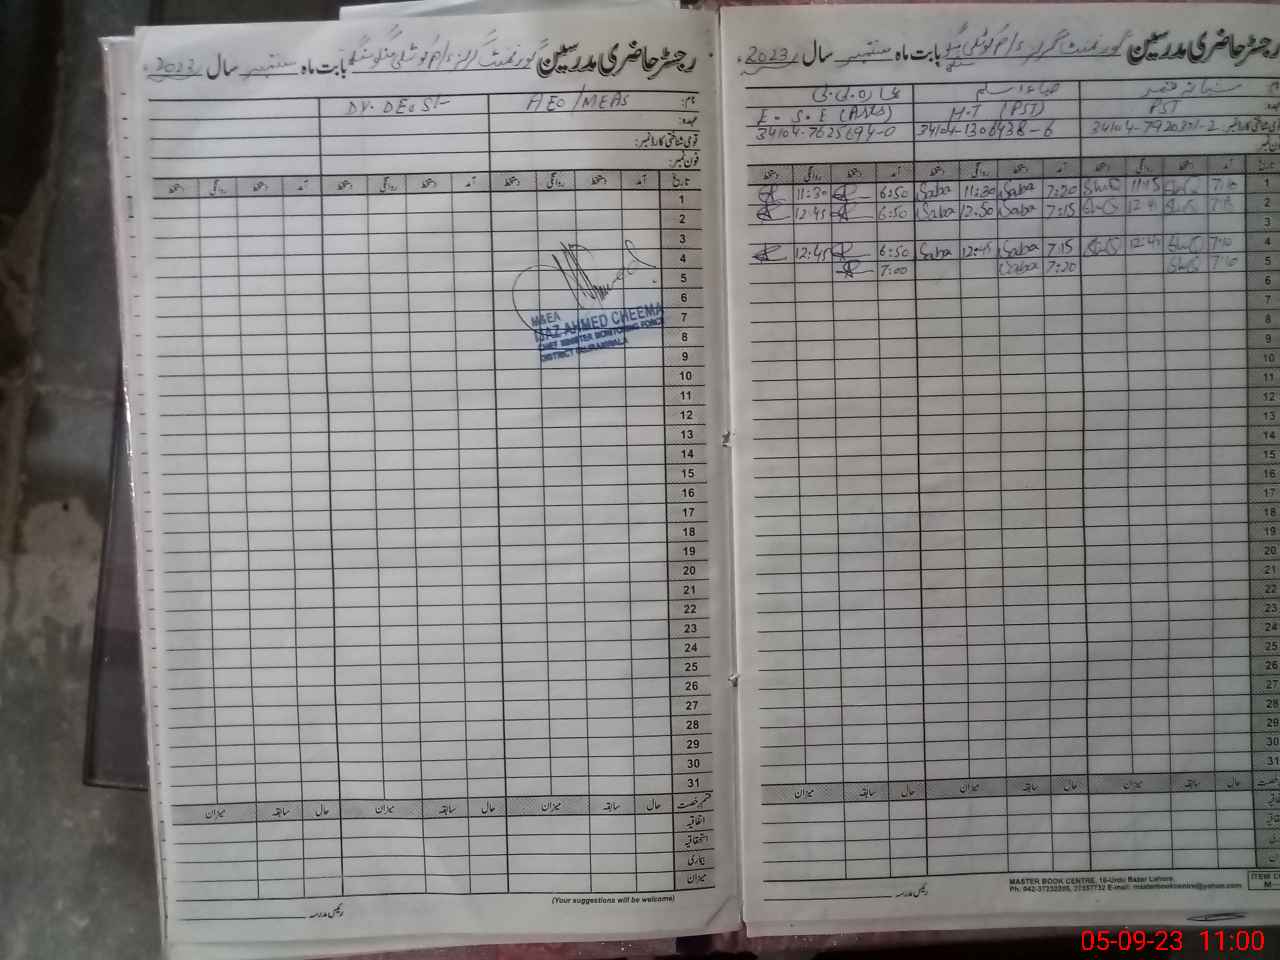 رجسٹر حاضری مدرسین گورنمنٹ گرلز بابت ماہ ستمبر سال 2023ء
نام: AEO/MEAS DY. DEOs/-
عہدہ:
قومی شناختی کارڈ نمبر:
فون نمبر:
تاریخ آمد دستخط روانگی دستخط آمد دستخط روانگی دستخط آمد دستخط روانگی دستخط
1
2
3
4
5
6
7
8
9
10
11
12
13
14
15
16
17
18
19
20
21
22
23
24
25
26
27
28
29
30
31
MEEA
IJAZ AHMED CHEEMA
CHIEF MINISTER MONITORING FORCE
DISTRICT GUJRANWALA
قسم رخصت حال سابقہ میزان حال سابقہ میزان حال سابقہ میزان
اتفاقیہ
استحقاقیہ
بیماری
میزان
(Your suggestions will be welcome)
رئیس مدرسہ
رجسٹر حاضری مدرسین گورنمنٹ گرلز بابت ماہ ستمبر سال 2023ء
PST H.T (PST) E.S.E (Arts)
34104-1306438-6 34104-7625694-0
تاریخ آمد دستخط روانگی دستخط آمد دستخط روانگی دستخط آمد دستخط روانگی دستخط
1 7:10 ShQ 11:15 ShQ 7:20 Saba 11:30 Saba 6:50 11:30
2 ShQ 12:45 ShQ 7:15 Saba 12:50 Saba 6:50 12:45
3
4 7:10 ShQ 12:45 ShQ 7:15 Saba 12:45 Saba 6:50 12:45
5 7:10 ShQ 7:20 Saba 7:00
6
7
8
9
10
11
12
13
14
15
16
17
18
19
20
21
22
23
24
25
26
27
28
29
30
31
حال سابقہ میزان حال سابقہ میزان حال سابقہ میزان
MASTER BOOK CENTRE, 16-Urdu Bazar Lahore.
Ph: 042-37232205, 37357732 E-mail: masterbookcentre@yahoo.com
ITEM
رئیس مدرسہ
05-09-23 11:00